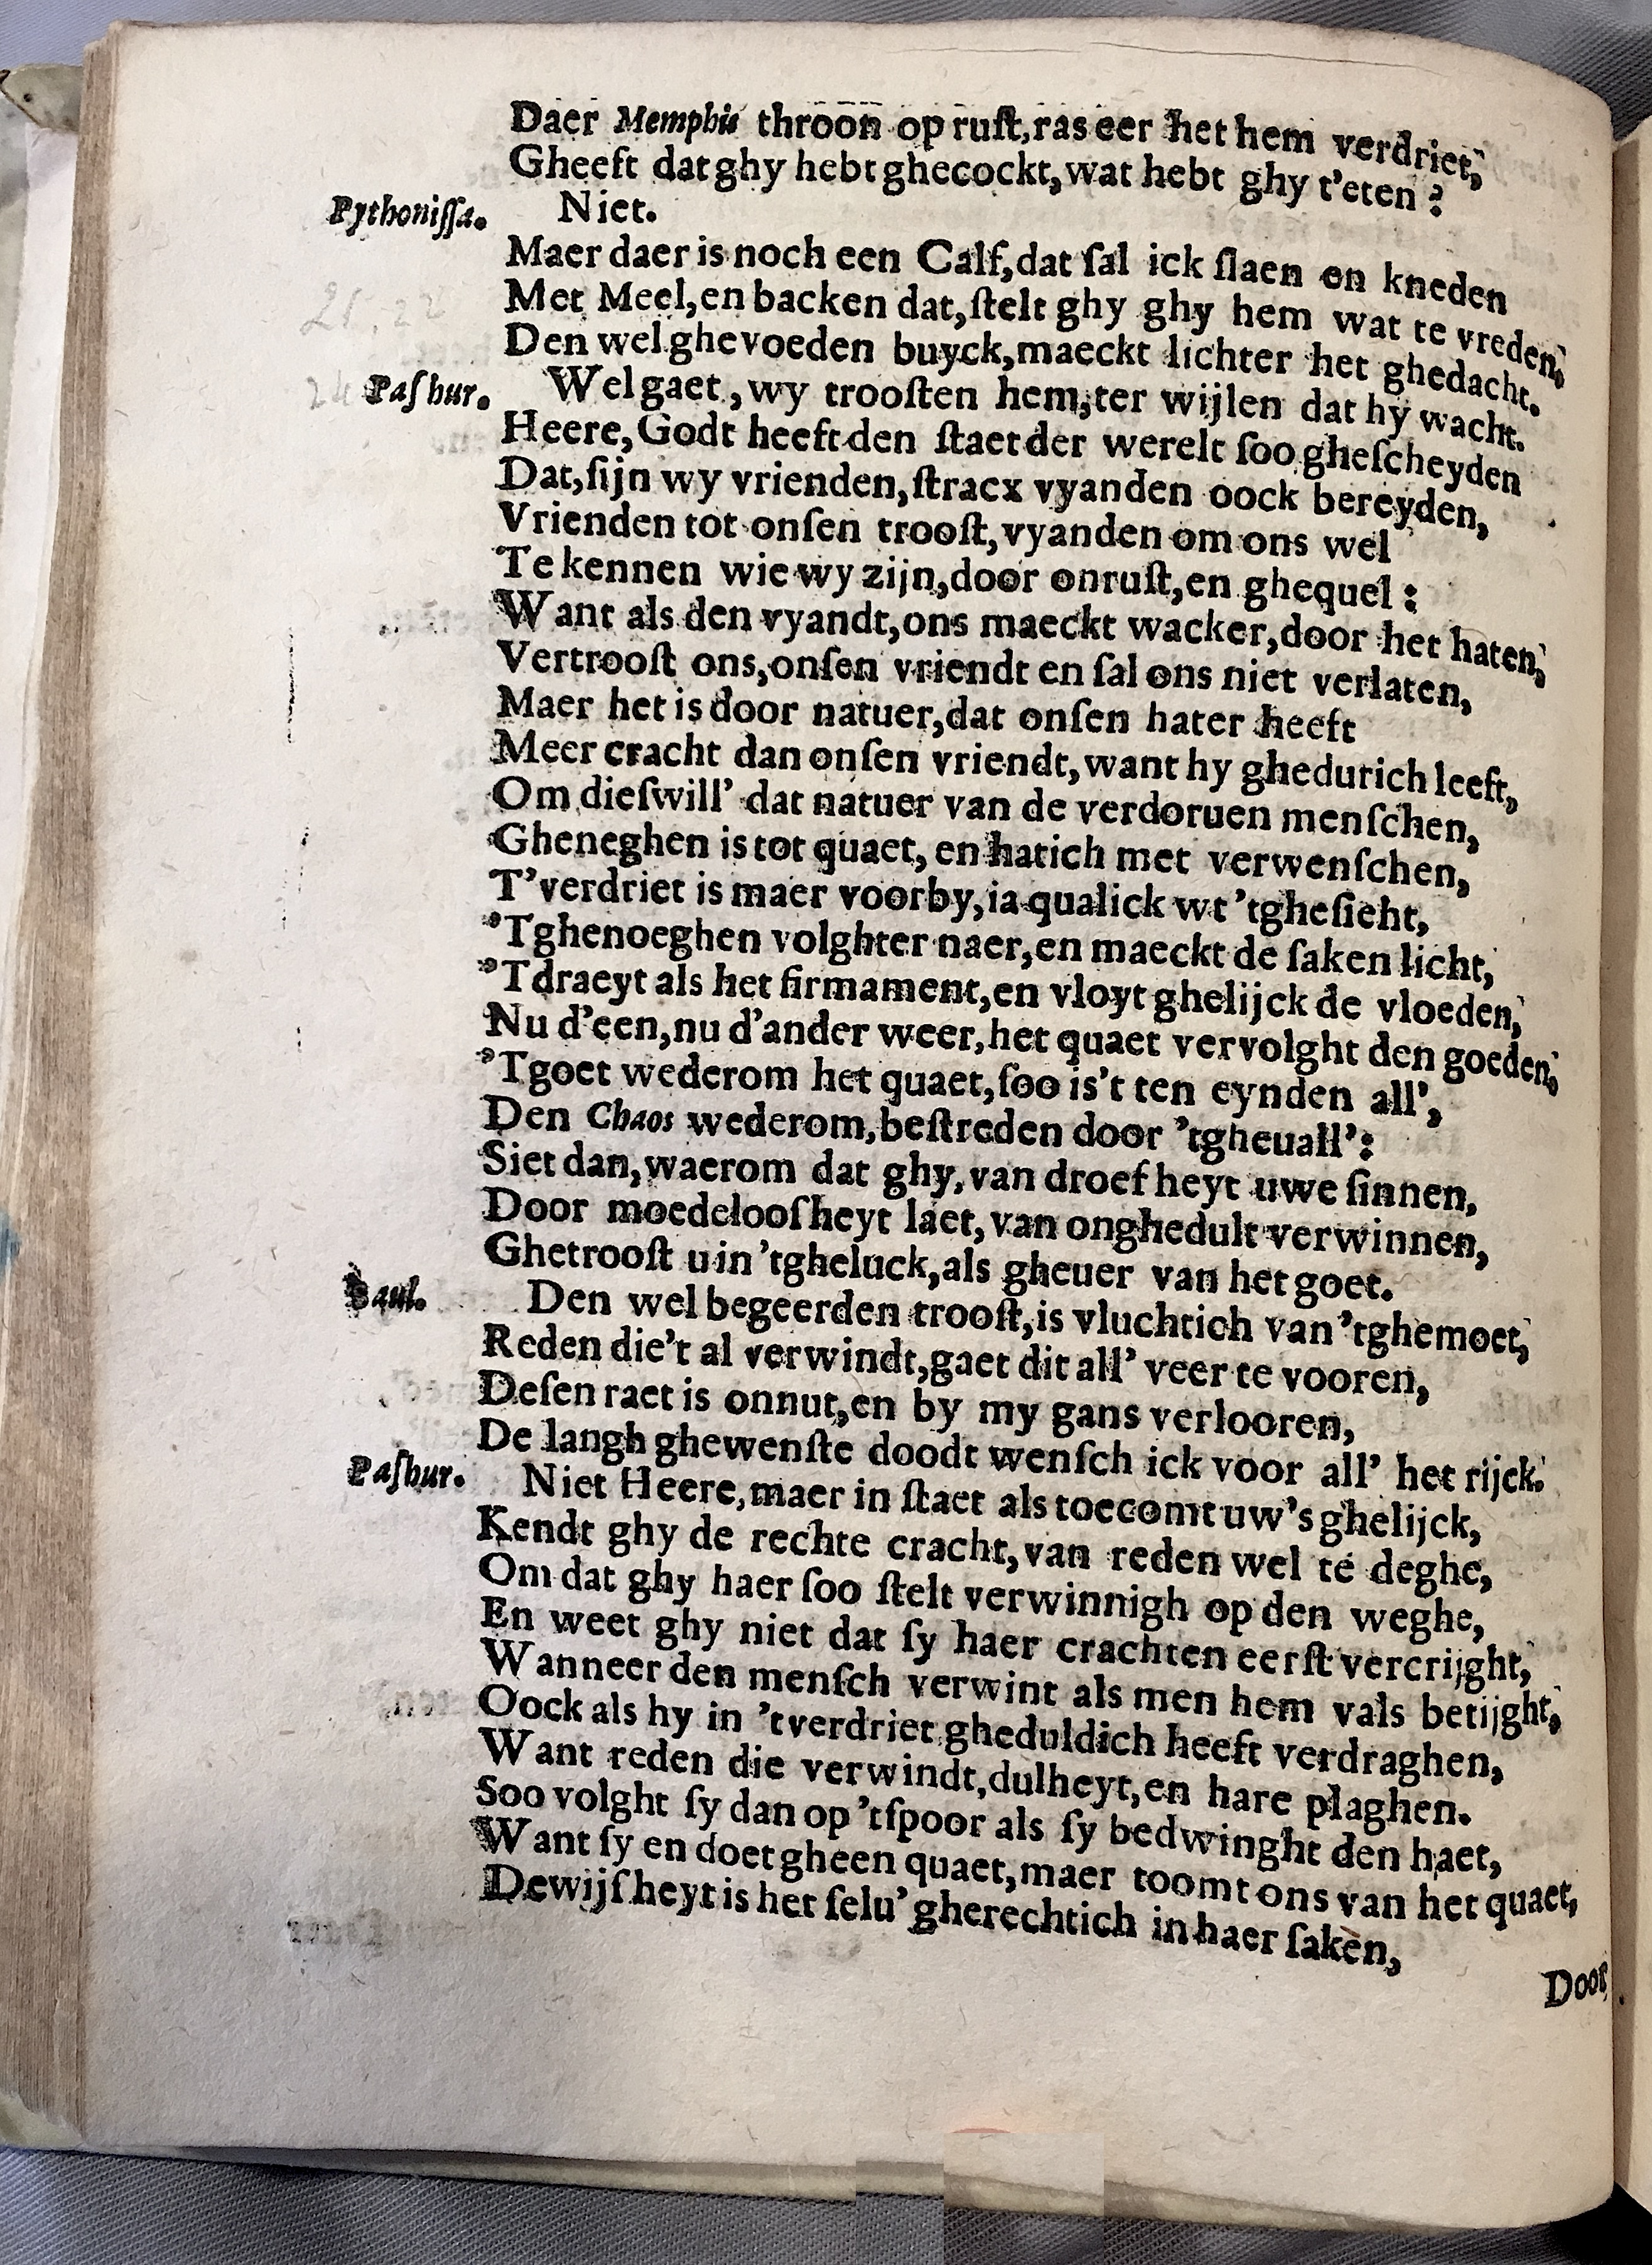 Daer Memphis throon op rust, ras eer het hem verdriet,
Gheeft dat ghy hebt ghecockt, wat hebt ghy t'eten?
Pythonissa. Niet.
Maer daer is noch een Calf, dat sal ick slaen en kneden
Met Meel, en backen dat, stelt ghy ghy hem wat te vreden,
Den wel ghevoeden buyck, maeckt lichter het ghedacht.
Pashur. Wel gaet, wy troosten hem, ter wijlen dat hy wacht.
Heere, Godt heeft den staet der werelt soo ghescheyden
Dat, sijn wy vrienden, stracx vyanden oock bereyden,
Vrienden tot onsen troost, vyanden om ons wel
Te kennen wie wy zijn, door onrust, en ghequel:
Want als den vyandt, ons maeckt wacker, door het haten,
Vertroost ons, onsen vriendt en sal ons niet verlaten,
Maer het is door natuer, dat onsen hater heeft
Meer cracht dan onsen vriendt, want hy ghedurich leeft,
Om dieswill' dat natuer van de verdoruen menschen,
Gheneghen is tot quaet, en hatich met verwenschen,
T'verdriet is maer voorby, ia qualick wt 'tghesieht,
'Tghenoeghen volghter naer, en maeckt de saken licht,
'Tdraeyt als het firmament, en vloyt ghelijck de vloeden,
Nu d'een, nu d'ander weer, het quaet vervolght den goeden,
'Tgoet wederom het quaet, soo is't ten eynden all',
Den Chaos wederom, bestreden door 'tgheuall':
Siet dan, waerom dat ghy, van droefheyt uwe sinnen,
Door moedeloosheyt laet, van onghedult verwinnen,
Ghetroost u in 'tgheluck, als gheuer van het goet.
Saul. Den wel begeerden troost, is vluchtich van 'tghemoet,
Reden die't al verwindt, gaet dit all' veer te vooren,
Desen raet is onnut, en by my gans verlooren,
De langh ghewenste doodt wensch ick voor all' het rijck.
Pashur. Niet Heere, maer in staet als toecomt uw's ghelijck,
Kendt ghy de rechte cracht, van reden wel te deghe,
Om dat ghy haer soo stelt verwinnigh op den weghe,
En weet ghy niet dat sy haer crachten eerst vercrijght,
Wanneer den mensch verwint als men hem vals betijght,
Oock als hy in 'tverdriet gheduldich heeft verdraghen,
Want reden die verwindt, dulheyt, en hare plaghen.
Soo volght sy dan op 'tspoor als sy bedwinght den haet,
Want sy en doet gheen quaet, maer toomt ons van het quaet,
De wijsheyt is het selu' gherechtich in haer saken,
Door